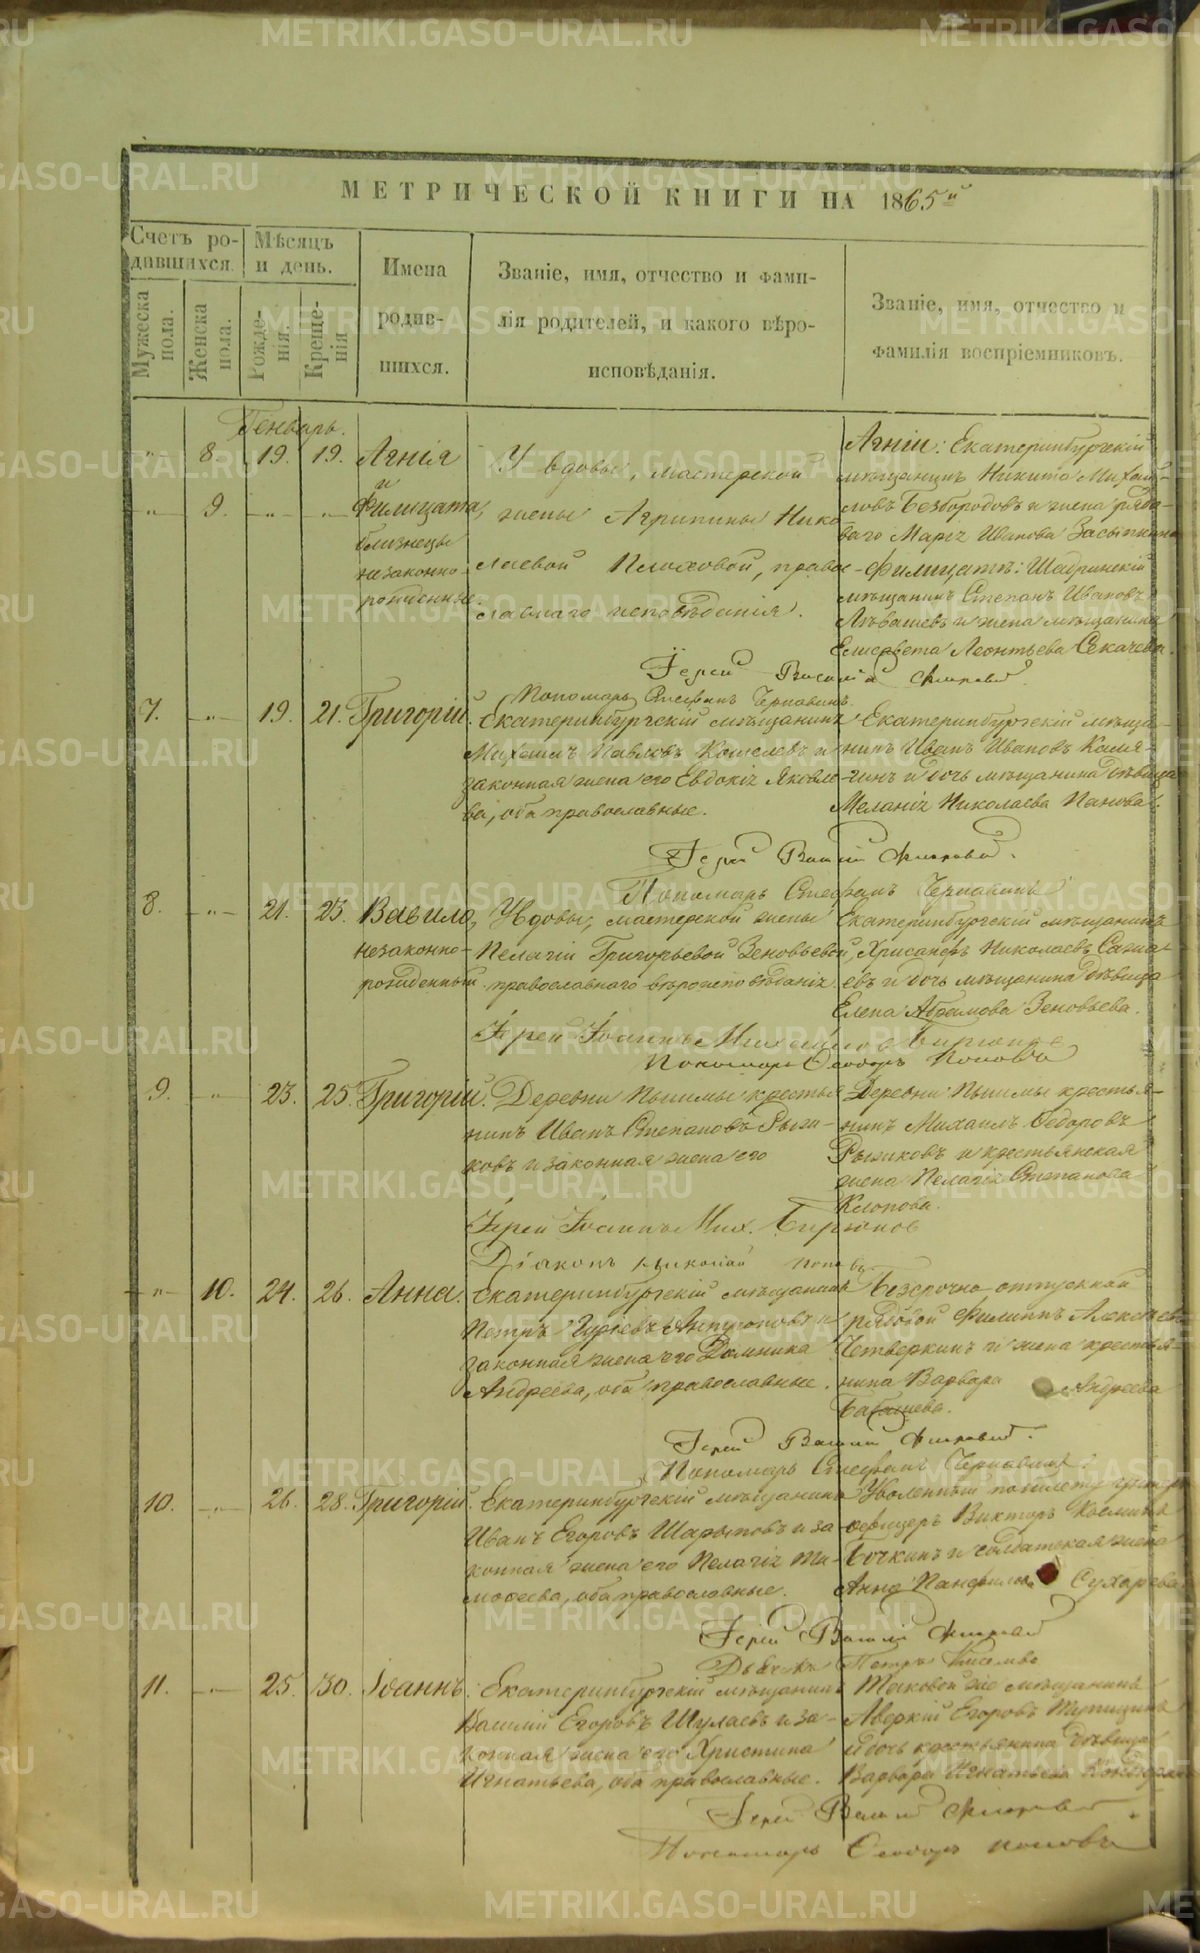 МЕТРИЧЕСКОЙ КНИГИ НА 1865й
Счетъ ро-
дившихся.
Мѣсяцъ
и день.
Мужеска
пола.
Женска
пола.
Рожде-
нія.
Креще-
нія
Имена
родив-
шихся.
Званіе, имя, отчество и фами-
лія родителей, и какого вѣро-
исповѣданія.
Званіе, имя, отчество и
фамилія воспріемниковъ.
Генварь.
8. 19. 19.
9.
Агнія
и
Филицата,
близнецы
незаконно-
рожденные.
У вдовы, мастерской
жены Агрипины Нико-
лаевой Плоховой, право-
славнаго исповѣданія.
Агніи: Екатеринбургскій
мѣщанинъ Никита Михай-
ловъ Безбородовъ и жена рядо-
ваго Марія Иванова Засыпкина
Филицатѣ: Шадринскій
мѣщанинъ Степанъ Ивановъ
и жена мѣщанина
Елисавета Леонтьева Секачева.
Іерей Василій
Пономарь Стефанъ Чернавинъ.
7. 19. 21. Григорій.
Екатеринбургскій мѣщанинъ
Михаилъ Павловъ Кошелевъ и
законная жена его Евдокія Яковле-
ва, оба православные.
Екатеринбургскій мѣща-
нинъ Иванъ Ивановъ Каля-
гинъ и дочь мѣщанина дѣвица
Меланія Николаева Панова.
Іерей Василій
Пономарь Стефанъ Чернавинъ
8. 21. 23. Вавило,
незаконно-
рожденный.
У вдовы, мастерской жены
Пелагіи Григорьевой Зеновьевой,
православнаго вѣроисповѣданія.
Екатеринбургскій мѣщанинъ
Хрисанфъ Николаевъ
евъ и дочь мѣщанина дѣвица
Елена Абрамова Зеновьева.
Іерей Іоаннъ Михайловъ Бирюковъ
Пономарь Ѳеодоръ Поповъ
9. 23. 25. Григорій.
Деревни Пышмы крестья-
нинъ Иванъ Степановъ Рыжи-
ковъ и законная жена его
Деревни Пышмы крестья-
нинъ Михаилъ Ѳедоровъ
Рыжиковъ и крестьянская
жена Пелагія Степанова
Клопова.
Іерей Іоаннъ Мих. Бирюковъ
Діаконъ Николай Поповъ
10. 24. 26. Анна.
Екатеринбургскій мѣщанинъ
Петръ Антроповъ и
законная жена его Домника
Андреева, оба православные.
Безсрочно отпускной
рядовой Филиппъ Алексѣевъ
Четверкинъ и жена крестья-
нина Варвара Андреева
Іерей Василій
Пономарь Стефанъ Чернавинъ.
10. 26. 28. Григорій.
Екатеринбургскій мѣщанинъ
Иванъ Егоровъ Шарыповъ и за-
конная жена его Пелагія Ти-
моѳеева, оба православные.
Уволенный по билету унтеръ
офицеръ Викторъ Косминъ
Бочкинъ и солдатская жена
Анна Панфилова Сухарева
Іерей Василій
Дьячекъ Петръ Киселевъ
11. 25. 30. Іоаннъ.
Екатеринбургскій мѣщанинъ
Василій Егоровъ Шулаевъ и за-
конная жена его Христина
Игнатьева, оба православные.
Таковой же мѣщанинъ
Аверкій Егоровъ Тупицынъ
и дочь крестьянина дѣвица
Варвара Игнатьева
Іерей Василій
Пономарь Ѳеодоръ Поповъ